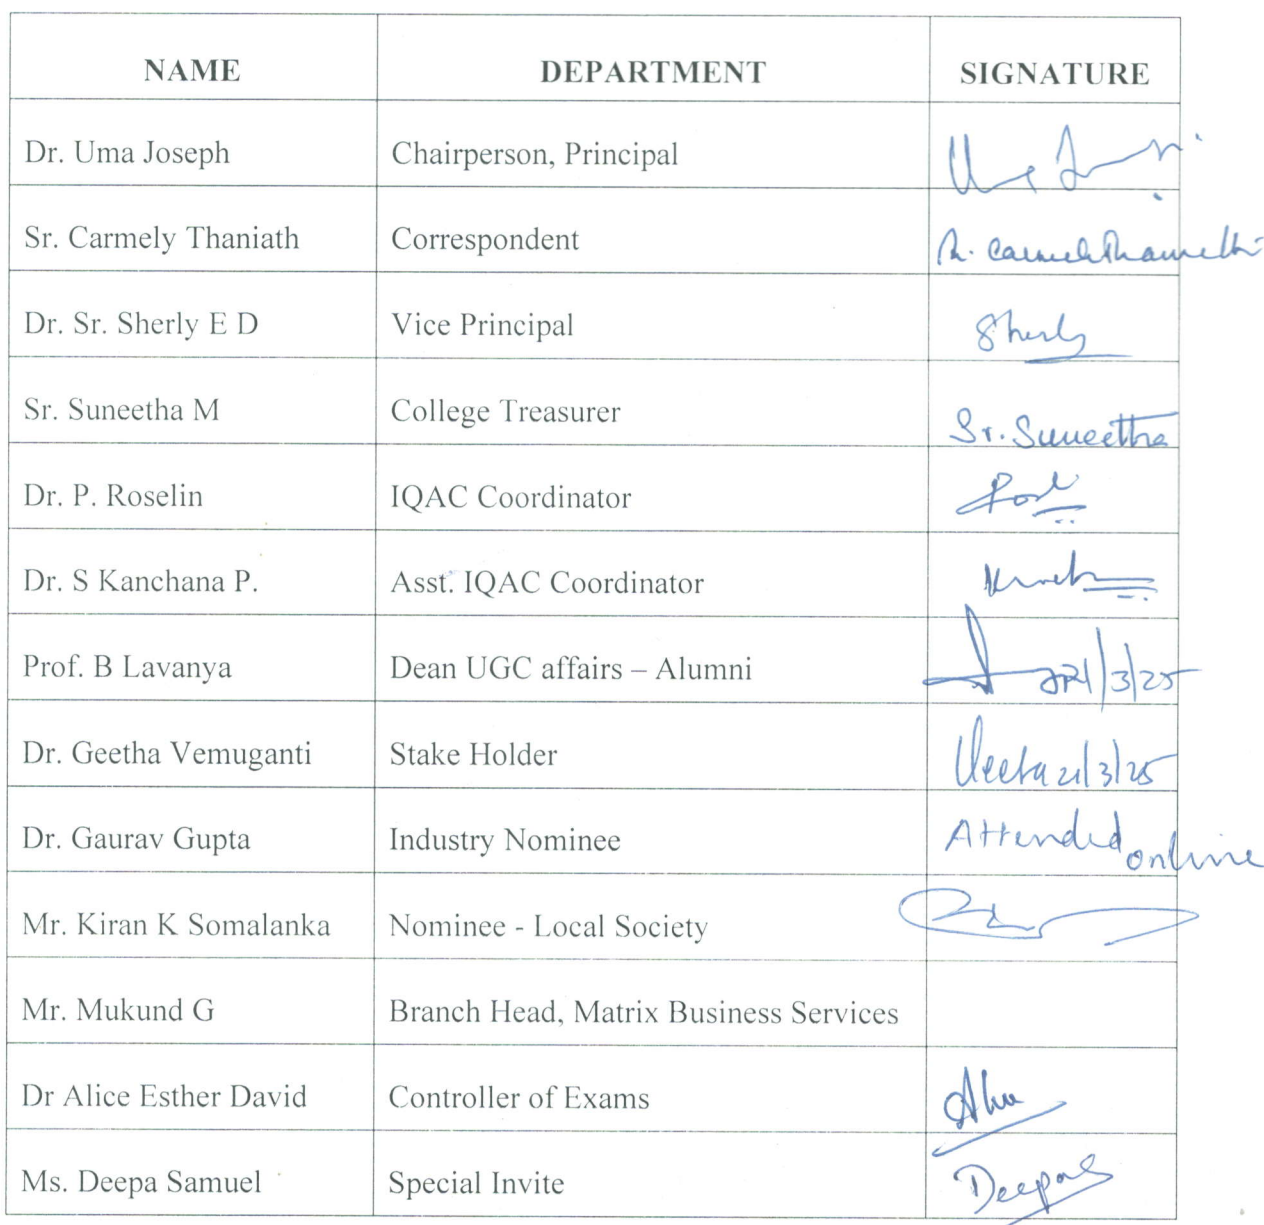 NAME DEPARTMENT SIGNATURE
Dr. Uma Joseph Chairperson, Principal
Sr. Carmely Thaniath Correspondent
Dr. Sr. Sherly E D Vice Principal Sherly
Sr. Suneetha M College Treasurer Sr. Suneetha
Dr. P. Roselin IQAC Coordinator
Dr. S Kanchana P. Asst. IQAC Coordinator
Prof. B Lavanya Dean UGC affairs – Alumni 21/3/25
Dr. Geetha Vemuganti Stake Holder Geeta 21/3/25
Dr. Gaurav Gupta Industry Nominee Attended online
Mr. Kiran K Somalanka Nominee - Local Society
Mr. Mukund G Branch Head, Matrix Business Services
Dr Alice Esther David Controller of Exams
Ms. Deepa Samuel Special Invite DeepaS